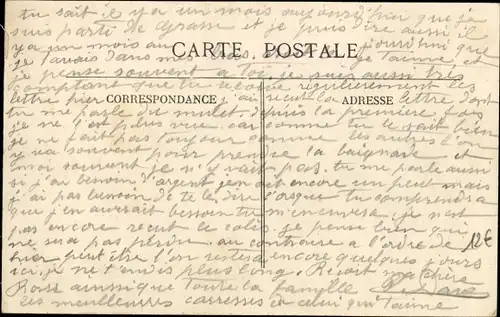 tu sait il y a un mois aujourd'hui que je
suis parti de Grasse et je puis dire aussi il
y a un mois au jourd'hui que
je t'avais dans mes bras je t'aime et
CARTE POSTALE
je pense souvent a toi je suis aussi très
comptant que tu recoive regulierement les
lettre hier j'ai recut la lettre dont
CORRESPONDANCE ADRESSE
tu me parle du mulet depuis la première fois
je ne l'ai plus vue car comme tu le sait bien
je ne fait pas toujour comme les autres l'on
va souvent pour prendre la baignade et
moi souvent je n'y vait pas. tu me parle aussi
si j'ai besoin d'argent j'en ait encore un peut mais
j'ai pas besoin de te le dire l'orsque tu comprendra
que j'en aurait besoin tu m'envera je n'est
pas encore recut ce colis je pense bien qui
ne sera pas perdu au contraire a l'ordre de
12€
hier peut être l'on restera encore quelques jours
ici, je ne t'en dis plus long. Recoit ma chère
Rose ainsique toute la famille
les meulleures carresses de celui qui t'aime